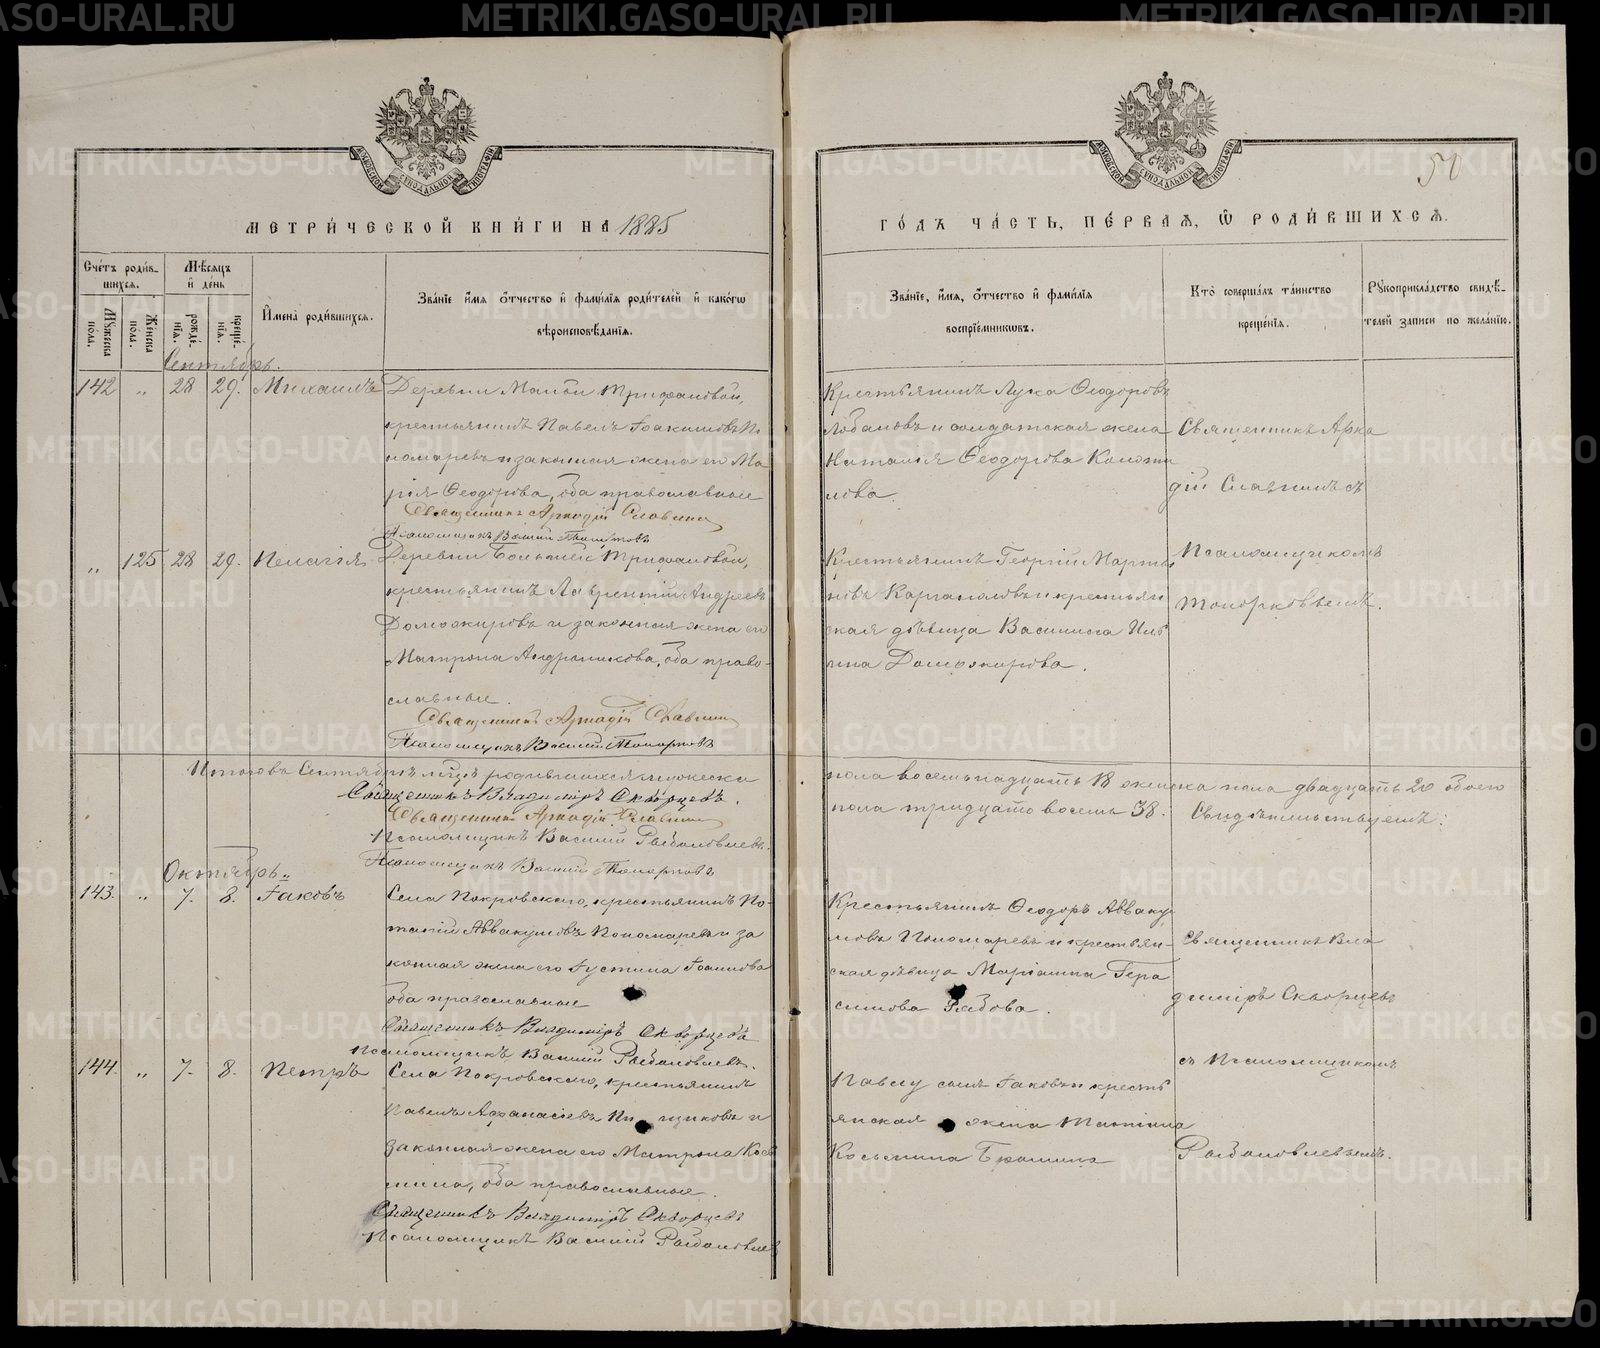 МЕТРИ́ЧЕСКОЙ КНИ́ГИ НА 1885
ГО́ДЪ ЧА́СТЬ, ПЕ́РВАЯ, Ѡ РОДИ́ВШИХСЯ.
50
Сче́тъ роди́в-
шихся.
Мꙋжеска пола.
Же́нска пола.
Мѣсяцъ
и де́нь
рожде́нїя.
креще́нїя.
Имена̀ роди́вшихся.
Зва́нїе имя о́тчество и фами́лїя роди́телей и како́гѡ
вѣроисповѣ́данїя.
Зва́нїе, имя, о́тчество и фами́лїя
воспрїе́мниковъ.
Кто̀ соверша́лъ та́инство
креще́нїя.
Рꙋкоприкла́дство свидѣ́-
телей записи по жела́нїю.
Сентябрь.
142 „ 28 29. Михаилъ
Деревни Малой Трифановой,
крестьянинъ Павелъ Іоакимовъ По
номаревъ и законная жена его Ма
рія Ѳеодорова, оба православные
Священникъ Аркадій Славнинъ
Псаломщикъ Василій Топорковъ
Крестьянинъ Лука Ѳеодоровъ
Лобановъ и солдатская жена
Наталія Ѳеодорова
Священникъ Арка
дій Славнинъ съ
„ 125 28 29. Пелагія
Деревни Большей Трифановой,
крестьянинъ Лаврентій Андреевъ
Доможировъ и законная жена его
Матрона Андроникова, оба право-
славные.
Священникъ Аркадій Славнинъ
Псаломщикъ Василій Топорковъ
Крестьянинъ Георгій Марты
новъ Каргаполовъ и крестьян
ская дѣвица Василиса Иль
ина Доможирова.
Псаломщикомъ
Топорковымъ.
Итого въ Сентябрѣ мѣсяцѣ родившихся мужеска
пола восемьнадцать 18 женска пола двадцать 20 обоего
пола тридцать восемь 38. Свидѣтельствуемъ:
Священникъ Владиміръ Скворцевъ.
Священникъ Аркадій Славнинъ
Псаломщикъ Василій Рыболовлевъ.
Псаломщикъ Василій Топорковъ
Октябрь „
143. „ 7. 8. Іаковъ
Села Покровскаго, крестьянинъ По-
тапій Аввакумовъ Пономаревъ и за
конная жена его Іустина Іоаннова
оба православные
Священникъ Владиміръ Скворцевъ
Псаломщикъ Василій Рыболовлевъ.
Крестьянинъ Ѳеодоръ Авваку
мовъ Пономаревъ и крестьян-
ская дѣвица Маріанна Гера
симова Рябова.
Священникъ Вла
диміръ Скворцевъ
144. „ 7. 8. Петръ
Села Покровскаго, крестьянинъ
Павелъ Аѳанасіевъ и
законная жена его Матрона Кось
мина, оба православные.
Священникъ Владиміръ Скворцевъ
Псаломщикъ Василій Рыболовлев
Павлу сынъ Іаковъ и кресть
янская жена Татіана
Косьмина
съ Псаломщикомъ
Рыболовлевымъ.